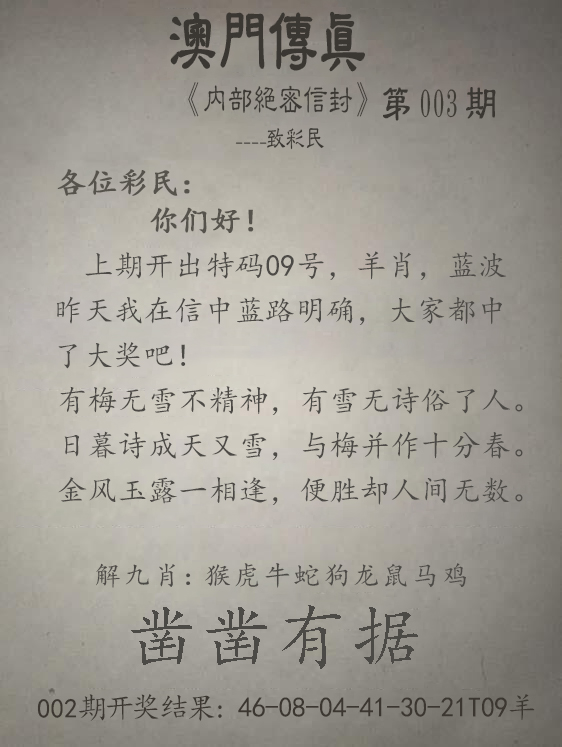 澳門傳眞
《内部絕密信封》第003期
----致彩民
各位彩民：
你们好！
上期开出特码09号，羊肖，蓝波
昨天我在信中蓝路明确，大家都中
了大奖吧！
有梅无雪不精神，有雪无诗俗了人。
日暮诗成天又雪，与梅并作十分春。
金风玉露一相逢，便胜却人间无数。
解九肖：猴虎牛蛇狗龙鼠马鸡
凿凿有据
002期开奖结果：46-08-04-41-30-21T09羊